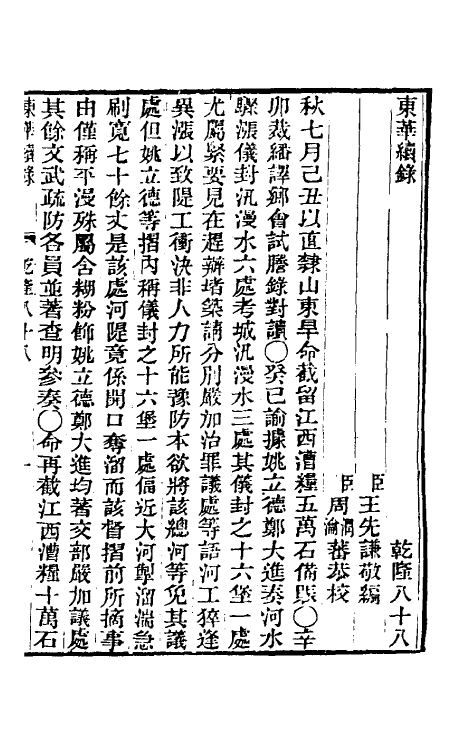 東華續錄　乾隆八十八
臣王先謙敬編
臣周潤蕃周瀹蕃恭校
秋七月己丑以直隸山東旱命截留江西漕糧五萬石備賑〇辛
卯裁繙譯鄉會試謄錄對讀〇癸巳諭據姚立德鄭大進奏河水
驟漲儀封汛漫水六處考城汛漫水三處其儀封之十六堡一處
尤屬緊要見在趕辦堵築請分別嚴加治罪議處等語河工猝逢
異漲以致隄工衝決非人力所能豫防本欲將該總河等免其議
處但姚立德等摺內稱儀封之十六堡一處偪近大河掣溜湍急
刷寬七十餘丈是該處河隄竟係開口奪溜而該督摺前所摘事
由僅稱平漫殊屬含糊粉飾姚立德鄭大進均著交部嚴加議處
其餘文武疏防各員並著查明參奏〇命再截江西漕糧十萬石
東華續錄　乾隆八十八　一